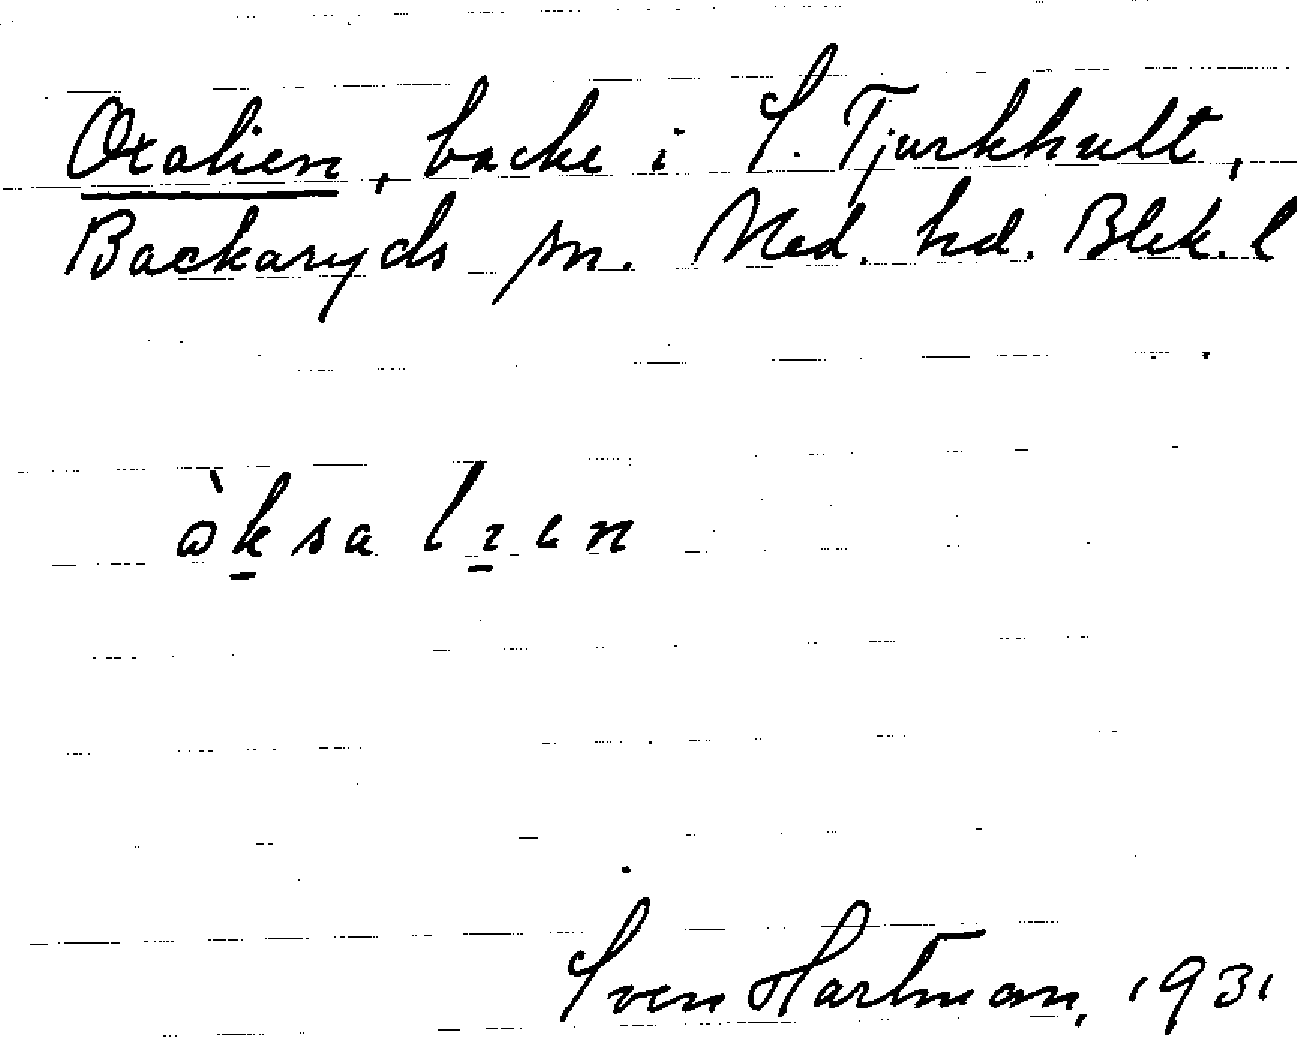 Oxalien, backe i S. Tjurkhult,
Backaryds sn. Med. hd. Blek. l
òksalɪen
Sven Hartman, 1931